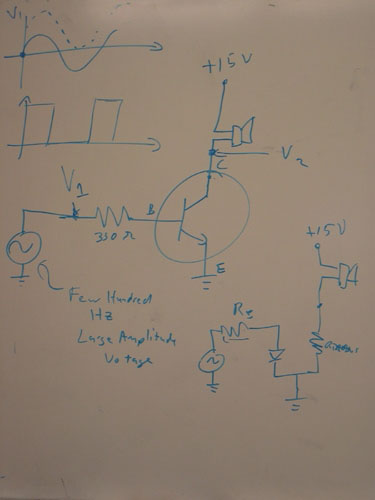 V1
+15V
V2
C
V1
B
330 Ω
E
+15V
Few Hundred
Hz
Large Amplitude
Voltage